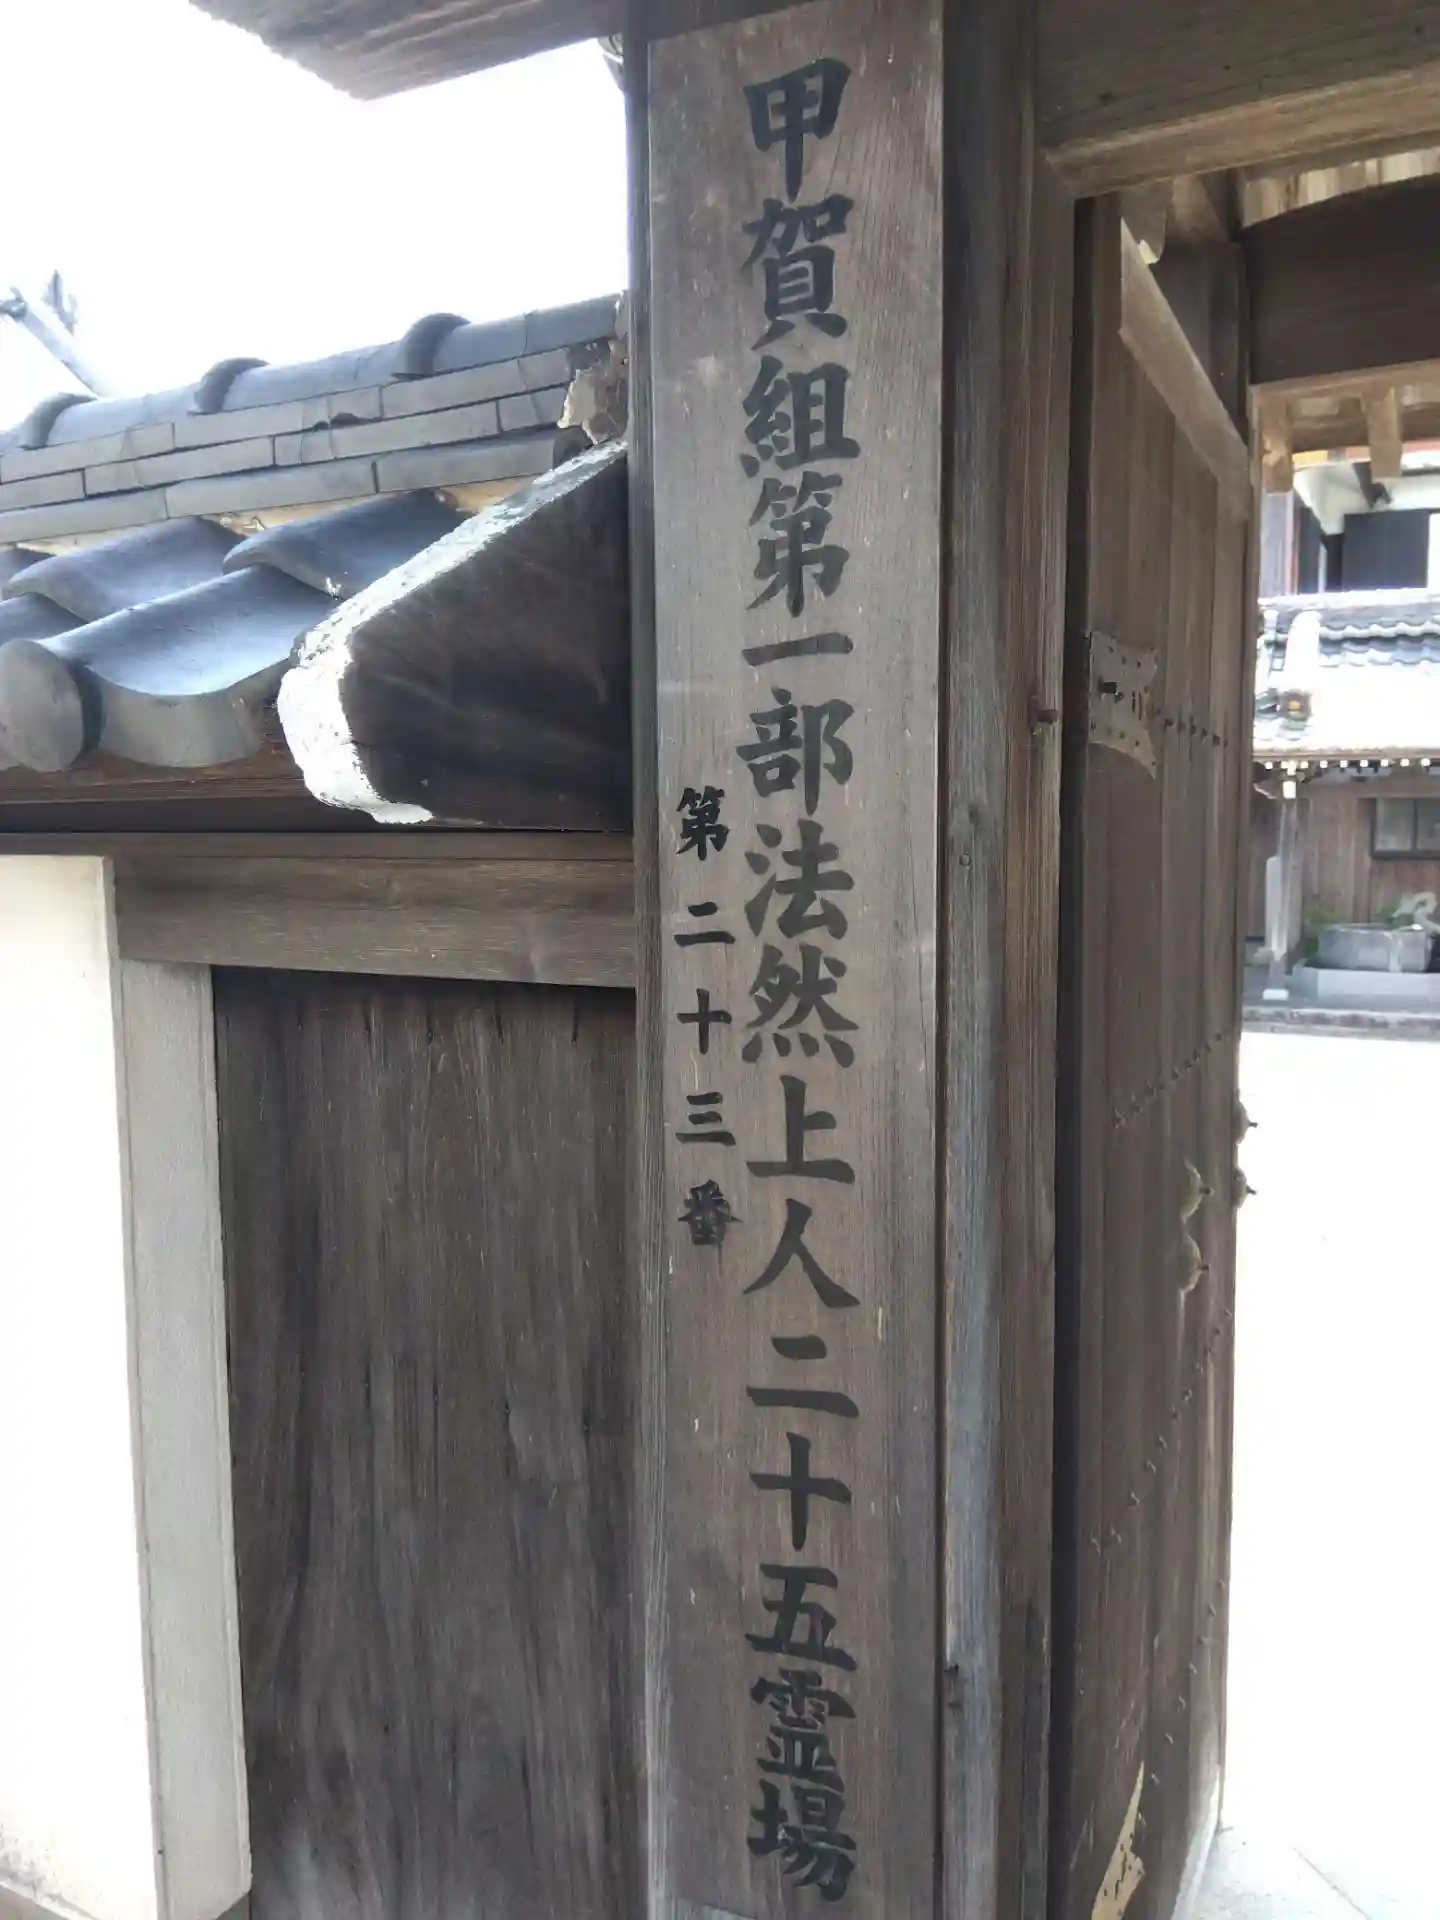 甲賀組第一部法然上人二十五霊場
第二十三番